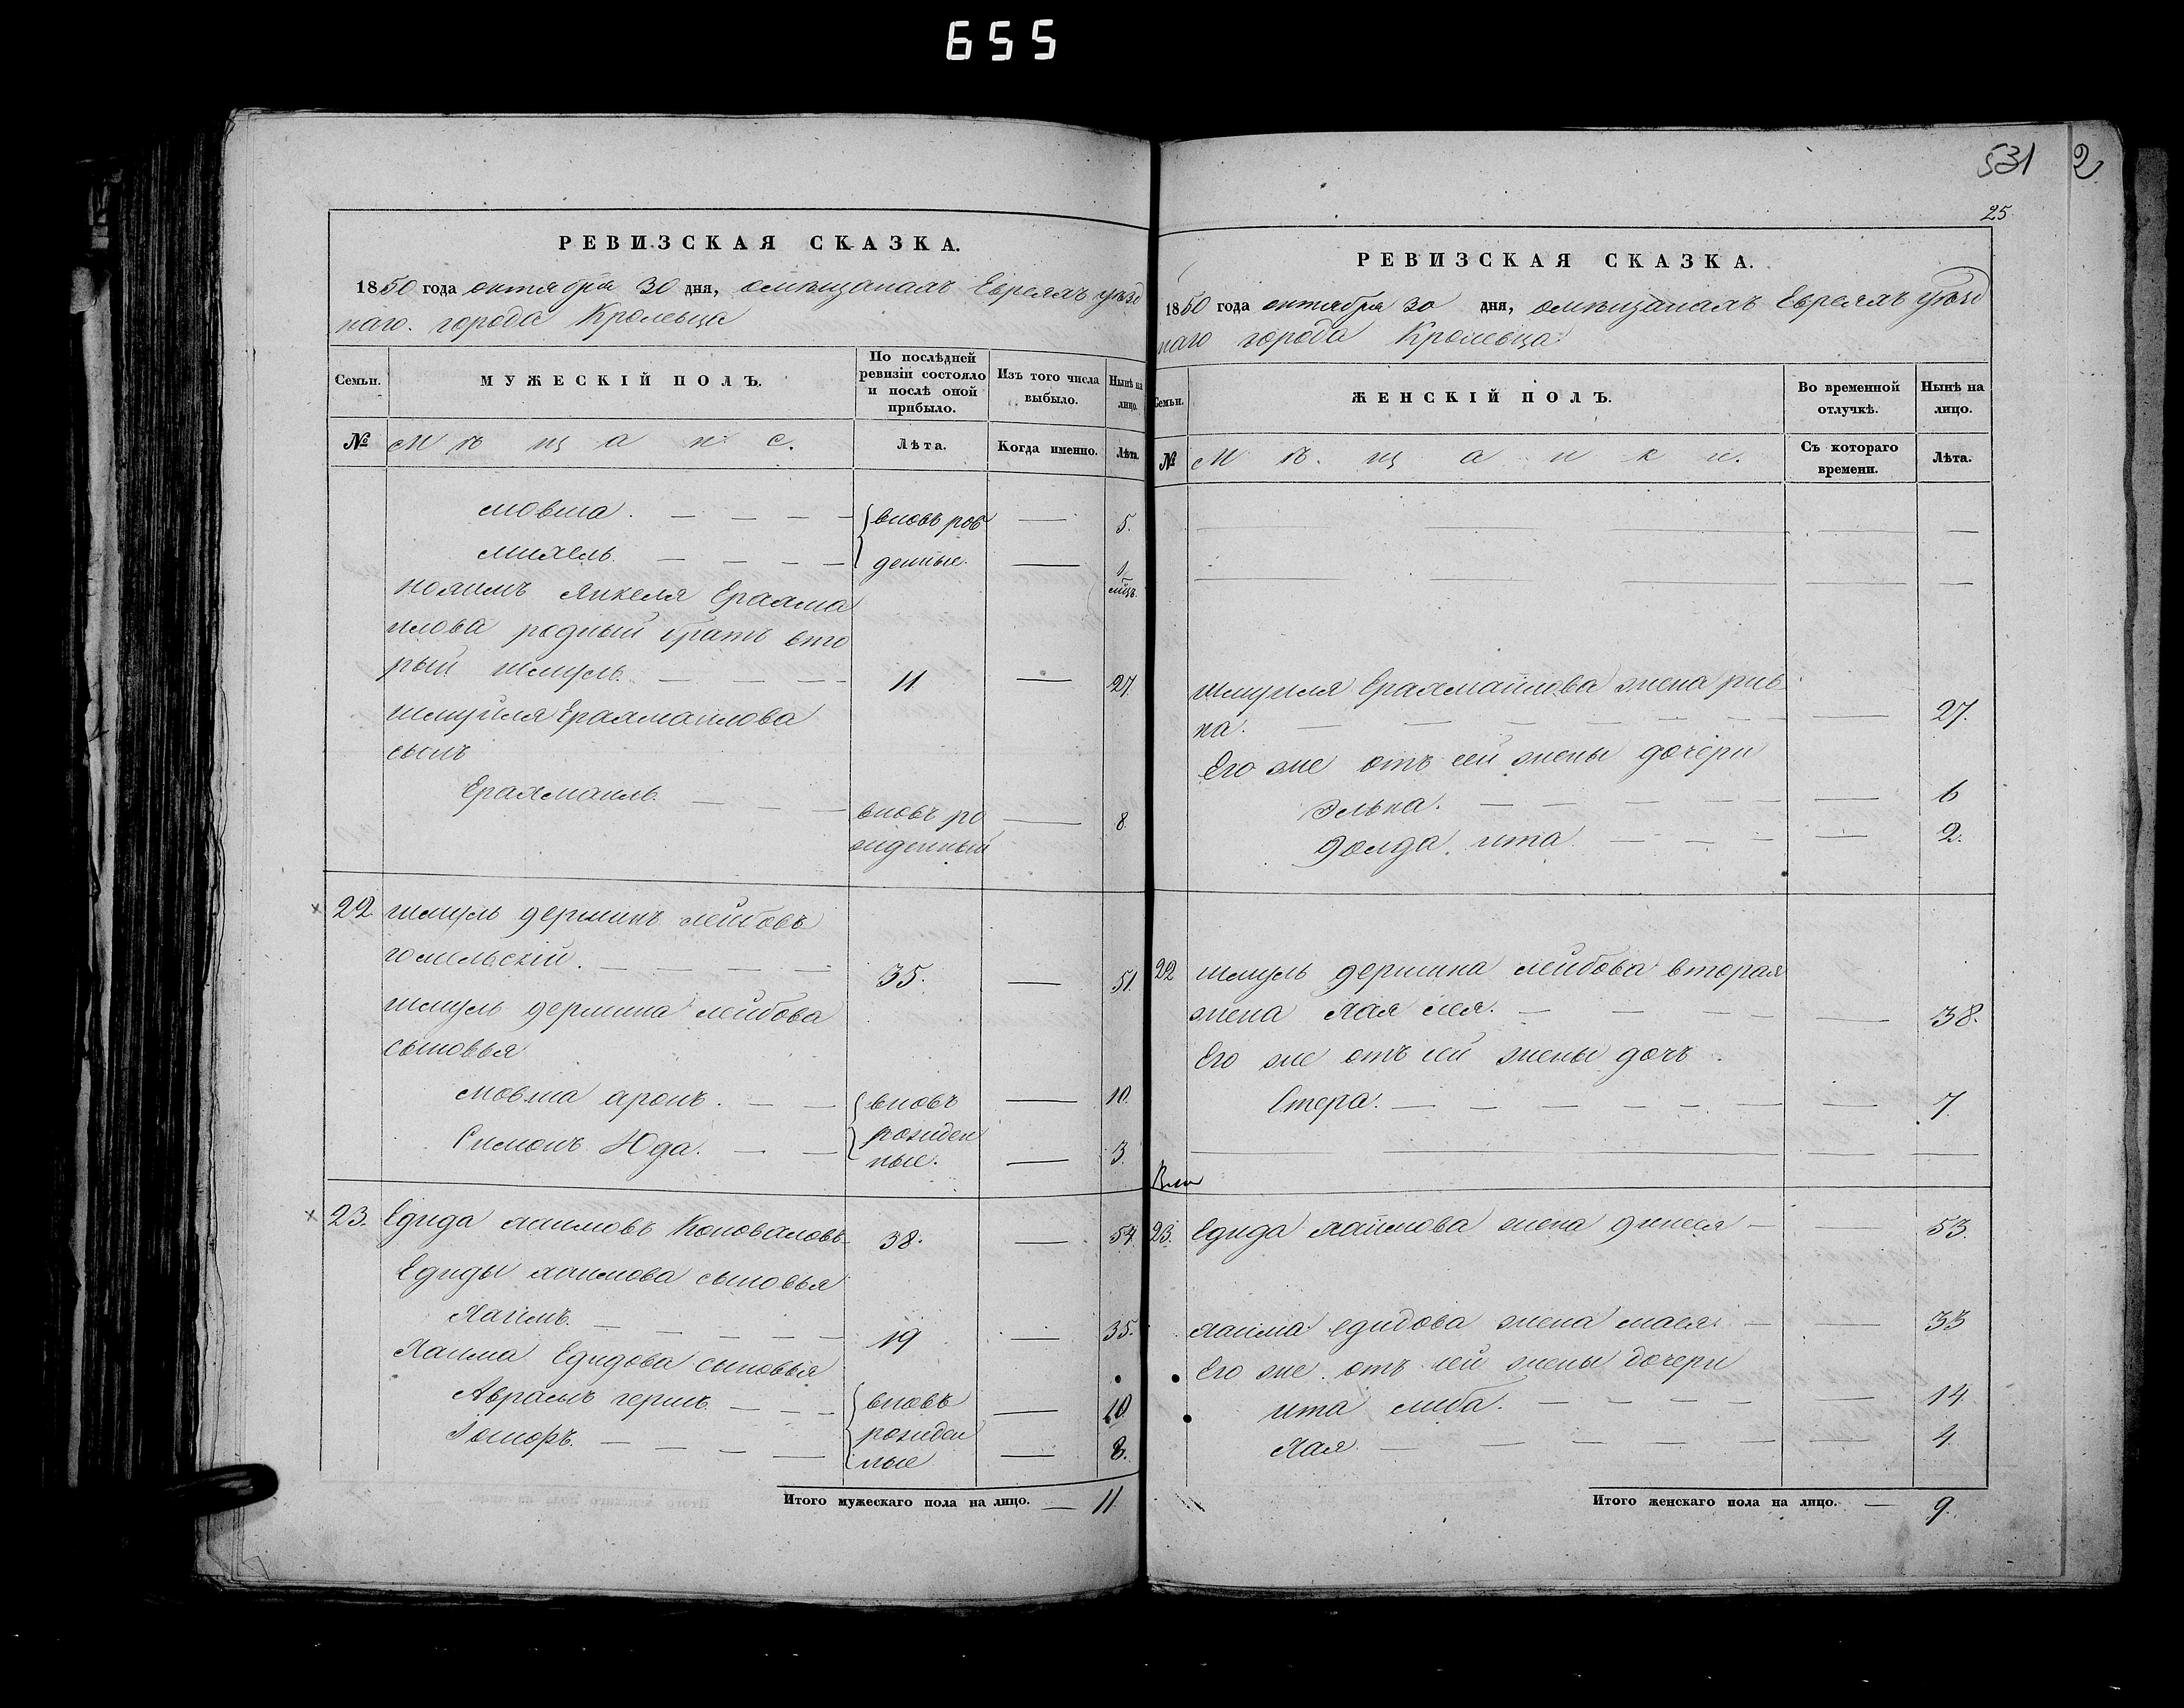 655
РЕВИЗСКАЯ СКАЗКА.
1850 года октября 30 дня, омѣщанахъ Евреяхъ уѣзд
наго. города Кролевца
Семьи.
МУЖЕСКІЙ ПОЛЪ.
По послѣдней
ревизіи состояло
и послѣ оной
прибыло.
Изъ того числа
выбыло.
Нынѣ на
лицо.
№ Мѣщане. Лѣта. Когда именно. Лѣта.
мовша. вновь рож 5.
михель. денные. 1/
мѣцъ.
Нохимъ Янкеля Ерахма
илова родный братъ вто
рый шмуль. 11 27.
шмуйля Ерахмаилова
сынъ
Ерахмаиль. вновь ро 8.
жденный
22 шмуль гершинъ лейбовъ
гомельскій. 35. 51.
шмуль гершина лейбова
сыновья
мовша аронъ. вновь 10.
Симонъ Юда. рожден
ные. 3.
23. Едида хаимовъ Коноваловъ 38. 54.
Едиды хаимова сыновья
Хаимъ. 19 35.
Хаима Едидова сыновья
Аврамъ гершъ. вновь 10
рожден
ные 8.
Итого мужескаго пола на лицо. 11
531 2
25
РЕВИЗСКАЯ СКАЗКА.
1850 года октября 30 дня, омѣщанахъ Евреяхъ уѣзд
наго города Кролевца
Семьи.
ЖЕНСКІЙ ПОЛЪ.
Во временной
отлучкѣ.
Нынѣ на
лицо.
№ Мѣщанки. Съ котораго
времени.
Лѣта.
шмуиля Ерахмаилова жена рив
ка. 27.
Его же отъ сей жены дочери
Элька. 6
Голда ита 2.
22 шмуль гершина лейбова вторая
жена Хая лея. 38.
Его же отъ сей жены дочь
Стера. 7.
23. Едида хаимова жена динеся 53.
хаима едидова жена мася. 33
Его же отъ сей жены дочери
ита либа. 14.
Хая 4.
Итого женскаго пола на лицо. 9.